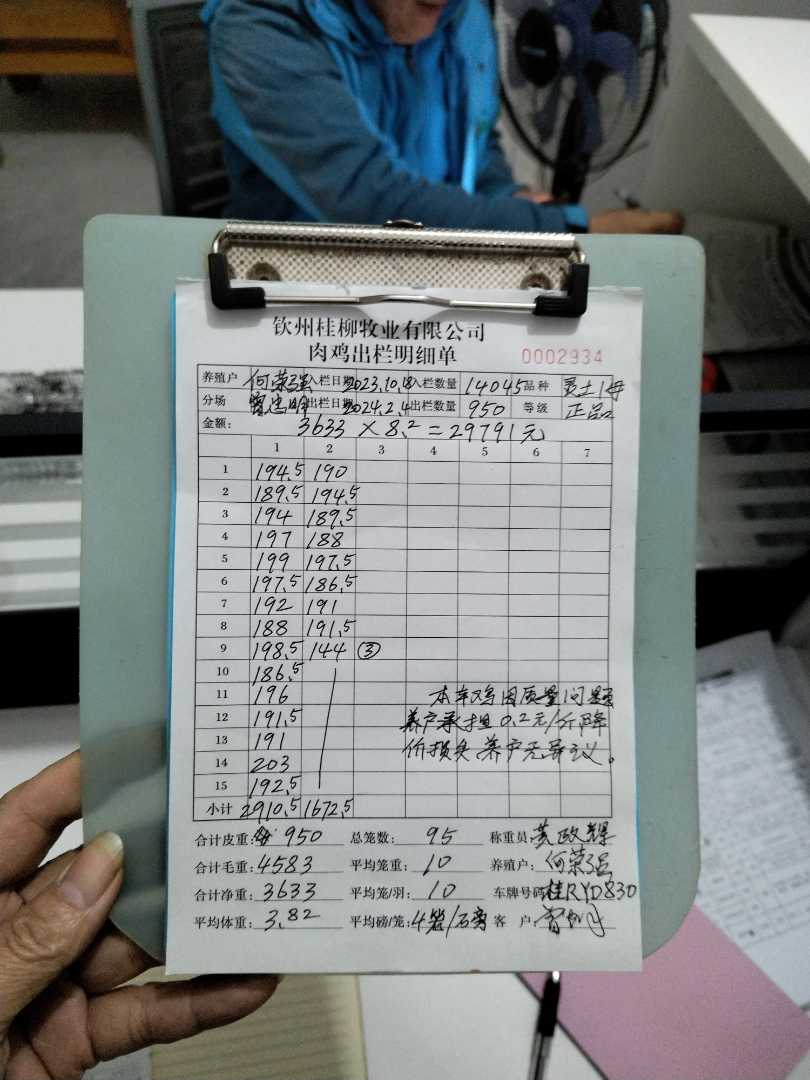 钦州桂柳牧业有限公司
肉鸡出栏明细单 0002934
养殖户 何荣强 入栏日期 2023.10.18 入栏数量 14045 品种 灵土1母
分场 出栏日期 2024.2.4 出栏数量 950 等级 正品
金额: 3633 × 8.2 = 29791元
1 2 3 4 5 6 7
1 194.5 190
2 189.5 194.5
3 194 189.5
4 197 188
5 199 197.5
6 197.5 186.5
7 192 191
8 188 191.5
9 198.5 144 ③
10 186.5
11 196 本车鸡因质量问题
12 191.5 养户承担0.2元/斤降
13 191 价损失养户无异议。
14 203
15 192.5
小计 2910.5 1672.5
合计皮重: 950 总笼数: 95 称重员: 黄政辉
合计毛重: 4583 平均笼重: 10 养殖户: 何荣强
合计净重: 3633 平均笼/羽: 10 车牌号码: 桂RYD830
平均体重: 3.82 平均磅/笼: 4笼/磅 客 户: